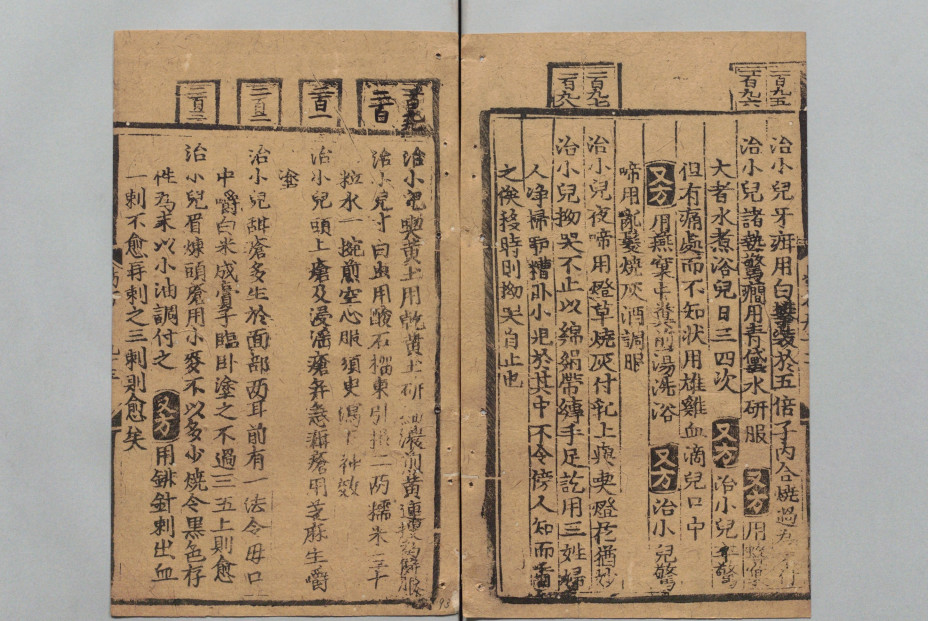 一百九五
一百九六
一百九七
一百九八
治小児牙疳用白礬裝於五倍子內合燒過為
治小児諸熱驚癎用青黛水研服 又方 用
大者水煮浴兒日三四次 又方 治小兒卒驚
但有痛處而不知状用雄雞血滴兒口中
又方 用燕窠中糞煎湯洗浴 又方 治小兒驚
啼用亂髮燒灰酒調服
治小兒夜啼用燈草燒灰付乳上與喫燈花猶妙
治小兒拗哭不止以綿絹帶縛手足訖用三姓婦
人净掃驢槽卧小児於其中不令傍人知而看
之俟移時則拗哭自止也
二百
二百一
二百二
二百三
治小児喫黄土用乾黄土研細濃煎黄連湯調解服
治小兒寸白虫用酸石榴東引根二两糯米三十
粒水一椀煎空心服須臾瀉下神效
治小兒頭上瘡及浸滛瘡并急瘡用芝麻生嚼
塗
治小兒甜瘡多生於面部两耳前有一法令毋口
中嚼白米成膏子臨卧塗之不過三五上則愈
治小兒眉煉頭瘡用小麥不以多少燒令黒色存
性為末以小油調付之 又方 用鈹針刺出血
一刺不愈再刺之三刺則愈矣
93